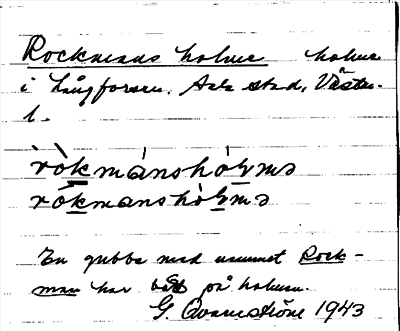 Rockmans holme holme
i Långforsen. Ask stad, Västm.
l.
ròkmánshòḷmə
rókmanshòḷmə
En gubbe med namnet Rock-
man har bott på holmen.
G. Qvarnström 1943